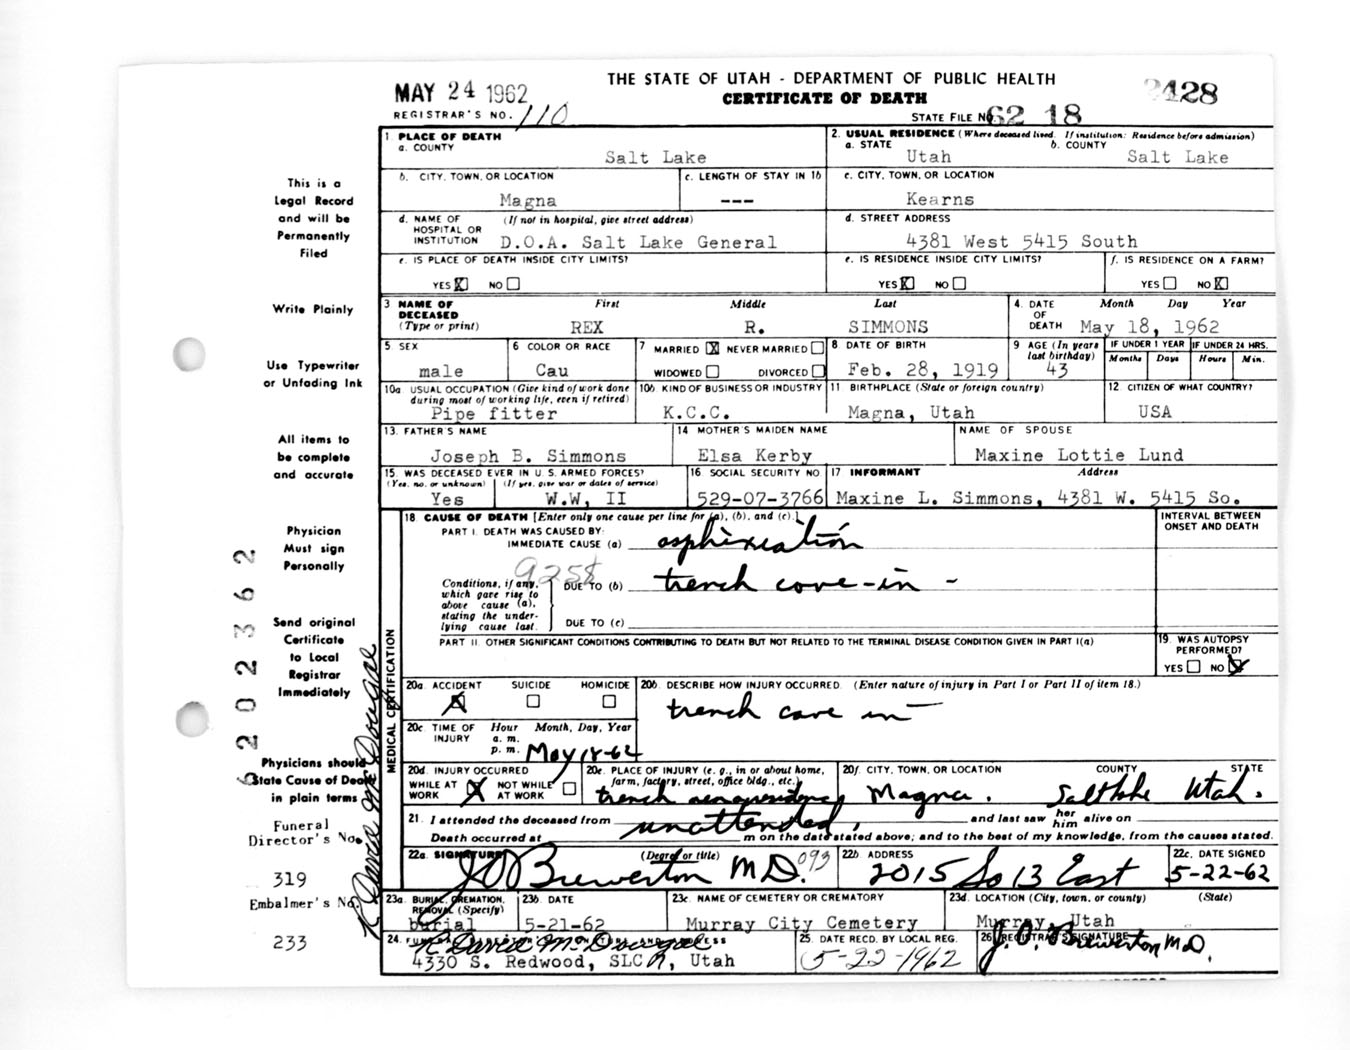 THE STATE OF UTAH - DEPARTMENT OF PUBLIC HEALTH
MAY 24 1962 CERTIFICATE OF DEATH 2428
REGISTRAR'S NO. 110 STATE FILE NO. 62 18
1. PLACE OF DEATH 2. USUAL RESIDENCE (Where deceased lived. If institution: Residence before admission)
a. COUNTY Salt Lake a. STATE Utah b. COUNTY Salt Lake
b. CITY, TOWN, OR LOCATION Magna c. LENGTH OF STAY IN 1b --- c. CITY, TOWN, OR LOCATION Kearns
d. NAME OF HOSPITAL OR INSTITUTION (If not in hospital, give street address) D.O.A. Salt Lake General d. STREET ADDRESS 4381 West 5415 South
e. IS PLACE OF DEATH INSIDE CITY LIMITS? e. IS RESIDENCE INSIDE CITY LIMITS? f. IS RESIDENCE ON A FARM?
YES X NO YES X NO YES NO X
3 NAME OF DECEASED (Type or print) First Middle Last 4. DATE OF DEATH Month Day Year
REX R. SIMMONS May 18, 1962
5. SEX 6 COLOR OR RACE 7 MARRIED X NEVER MARRIED 8 DATE OF BIRTH 9 AGE (In years last birthday) IF UNDER 1 YEAR IF UNDER 24 HRS.
Months Days Hours Min.
male Cau WIDOWED DIVORCED Feb. 28, 1919 43
10a USUAL OCCUPATION (Give kind of work done during most of working life, even if retired) 10b KIND OF BUSINESS OR INDUSTRY 11 BIRTHPLACE (State or foreign country) 12 CITIZEN OF WHAT COUNTRY?
Pipe fitter K.C.C. Magna, Utah USA
13. FATHER'S NAME 14 MOTHER'S MAIDEN NAME NAME OF SPOUSE
Joseph B. Simmons Elsa Kerby Maxine Lottie Lund
15. WAS DECEASED EVER IN U. S. ARMED FORCES? 16 SOCIAL SECURITY NO. 17 INFORMANT Address
(Yes, no, or unknown) (If yes, give war or dates of service)
Yes W.W, II 529-07-3766 Maxine L. Simmons, 4381 W. 5415 So.
18. CAUSE OF DEATH [Enter only one cause per line for (a), (b), and (c).] INTERVAL BETWEEN ONSET AND DEATH
PART I. DEATH WAS CAUSED BY:
IMMEDIATE CAUSE (a) asphixiation
Conditions, if any, which gave rise to above cause (a), stating the underlying cause last. DUE TO (b) trench cave-in -
DUE TO (c)
PART II. OTHER SIGNIFICANT CONDITIONS CONTRIBUTING TO DEATH BUT NOT RELATED TO THE TERMINAL DISEASE CONDITION GIVEN IN PART I(a) 19. WAS AUTOPSY PERFORMED?
YES NO X
20a. ACCIDENT X SUICIDE HOMICIDE 20b. DESCRIBE HOW INJURY OCCURRED. (Enter nature of injury in Part I or Part II of item 18.)
trench cave in
20c. TIME OF INJURY Hour a. m. p. m. Month, Day, Year May 18-62
20d. INJURY OCCURRED 20e. PLACE OF INJURY (e. g., in or about home, farm, factory, street, office bldg., etc.) 20f. CITY, TOWN, OR LOCATION COUNTY STATE
WHILE AT WORK X NOT WHILE AT WORK trench Magna. Salt Lake Utah.
21. I attended the deceased from unattended, and last saw her him alive on
Death occurred at m on the date stated above; and to the best of my knowledge, from the causes stated.
22a. SIGNATURE (Degree or title) 22b. ADDRESS 22c. DATE SIGNED
J O Brewerton M D. 093 2015 So 13 East 5-22-62
23a. BURIAL, CREMATION, REMOVAL (Specify) 23b. DATE 23c. NAME OF CEMETERY OR CREMATORY 23d. LOCATION (City, town, or county) (State)
burial 5-21-62 Murray City Cemetery Murray, Utah
24. 25. DATE RECD. BY LOCAL REG. 26 REGISTRAR'S SIGNATURE
R. David McDougal 5-22-1962 J. O. Brewerton M D.
4330 S. Redwood, SLC, Utah
This is a
Legal Record
and will be
Permanently
Filed
Write Plainly
Use Typewriter
or Unfading Ink
All items to
be complete
and accurate
Physician
Must sign
Personally
Send original
Certificate
to Local
Registrar
Immediately
Physicians should
State Cause of Death
in plain terms
Funeral
Director's No.
319
Embalmer's No.
233
MEDICAL CERTIFICATION
R David McDougal